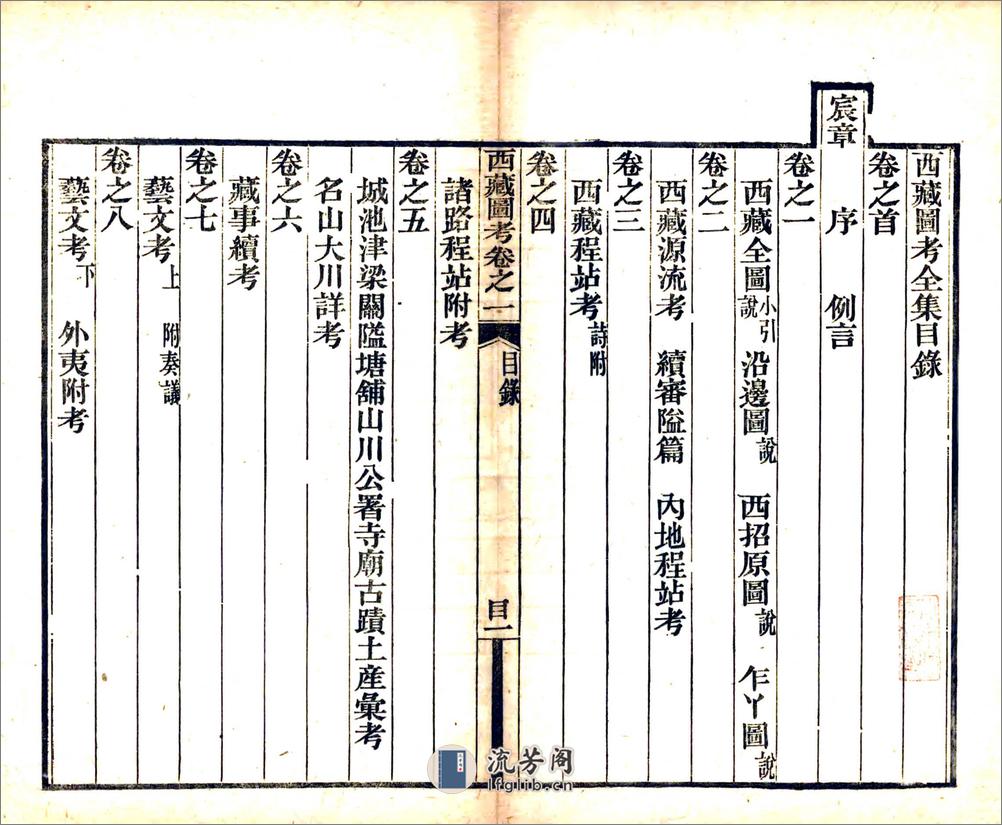 西藏圖考全集目錄
卷之首
宸章 序 例言
卷之一
西藏全圖小引說 沿邊圖說 西招原圖說 乍丫圖說
卷之二
西藏源流考 續審隘篇 內地程站考
卷之三
西藏程站考詩附
卷之四
西藏圖考卷之一 目錄 目一
諸路程站附考
卷之五
城池津梁關隘塘舖山川公署寺廟古蹟土產彙考
名山大川詳考
卷之六
藏事續考
卷之七
藝文考上 附奏議
卷之八
藝文考下 外夷附考
流芳阁
lfglib.cn